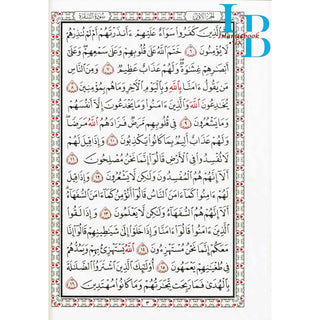 إِنَّ ٱلَّذِينَ كَفَرُوا۟ سَوَآءٌ عَلَيْهِمْ ءَأَنذَرْتَهُمْ أَمْ لَمْ تُنذِرْهُمْ
لَا يُؤْمِنُونَ ٦ خَتَمَ ٱللَّهُ عَلَىٰ قُلُوبِهِمْ وَعَلَىٰ سَمْعِهِمْ ۖ وَعَلَىٰٓ
أَبْصَـٰرِهِمْ غِشَـٰوَةٌ ۖ وَلَهُمْ عَذَابٌ عَظِيمٌ ٧ وَمِنَ ٱلنَّاسِ
مَن يَقُولُ ءَامَنَّا بِٱللَّهِ وَبِٱلْيَوْمِ ٱلْـَٔاخِرِ وَمَا هُم بِمُؤْمِنِينَ ٨
يُخَـٰدِعُونَ ٱللَّهَ وَٱلَّذِينَ ءَامَنُوا۟ وَمَا يَخْدَعُونَ إِلَّآ أَنفُسَهُمْ
وَمَا يَشْعُرُونَ ٩ فِى قُلُوبِهِم مَّرَضٌ فَزَادَهُمُ ٱللَّهُ مَرَضًا ۖ
وَلَهُمْ عَذَابٌ أَلِيمٌۢ بِمَا كَانُوا۟ يَكْذِبُونَ ١٠ وَإِذَا قِيلَ لَهُمْ
لَا تُفْسِدُوا۟ فِى ٱلْأَرْضِ قَالُوٓا۟ إِنَّمَا نَحْنُ مُصْلِحُونَ ١١
أَلَآ إِنَّهُمْ هُمُ ٱلْمُفْسِدُونَ وَلَـٰكِن لَّا يَشْعُرُونَ ١٢ وَإِذَا قِيلَ
لَهُمْ ءَامِنُوا۟ كَمَآ ءَامَنَ ٱلنَّاسُ قَالُوٓا۟ أَنُؤْمِنُ كَمَآ ءَامَنَ ٱلسُّفَهَآءُ ۗ
أَلَآ إِنَّهُمْ هُمُ ٱلسُّفَهَآءُ وَلَـٰكِن لَّا يَعْلَمُونَ ١٣ وَإِذَا لَقُوا۟
ٱلَّذِينَ ءَامَنُوا۟ قَالُوٓا۟ ءَامَنَّا وَإِذَا خَلَوْا۟ إِلَىٰ شَيَـٰطِينِهِمْ قَالُوٓا۟ إِنَّا
مَعَكُمْ إِنَّمَا نَحْنُ مُسْتَهْزِءُونَ ١٤ ٱللَّهُ يَسْتَهْزِئُ بِهِمْ وَيَمُدُّهُمْ
فِى طُغْيَـٰنِهِمْ يَعْمَهُونَ ١٥ أُو۟لَـٰٓئِكَ ٱلَّذِينَ ٱشْتَرَوُا۟ ٱلضَّلَـٰلَةَ
بِٱلْهُدَىٰ فَمَا رَبِحَت تِّجَـٰرَتُهُمْ وَمَا كَانُوا۟ مُهْتَدِينَ ١٦
٣